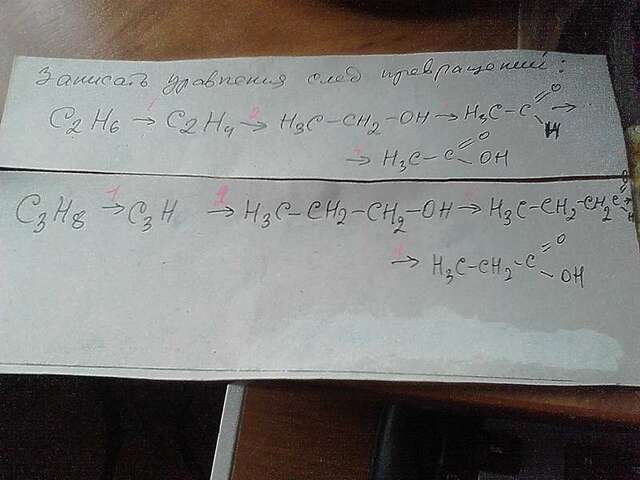 Записать уравнения след превращений:
C2H6 →1 C2H4 → H3C–CH2–OH → H3C–C=O H →
→ H3C–C=O –OH
C3H8 →1 C3H →2 H3C–CH2–CH2–OH → H3C–CH2–CH2
→ H3C–CH2–C=O –OH